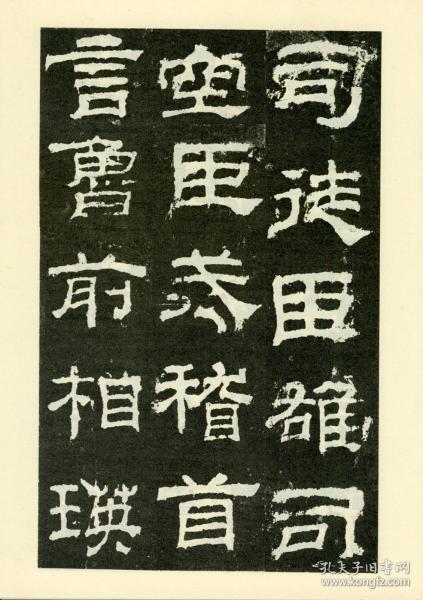 司徒臣雄司
空臣戒稽首
言魯前相瑛
孔夫子旧书网
www.kongfz.com